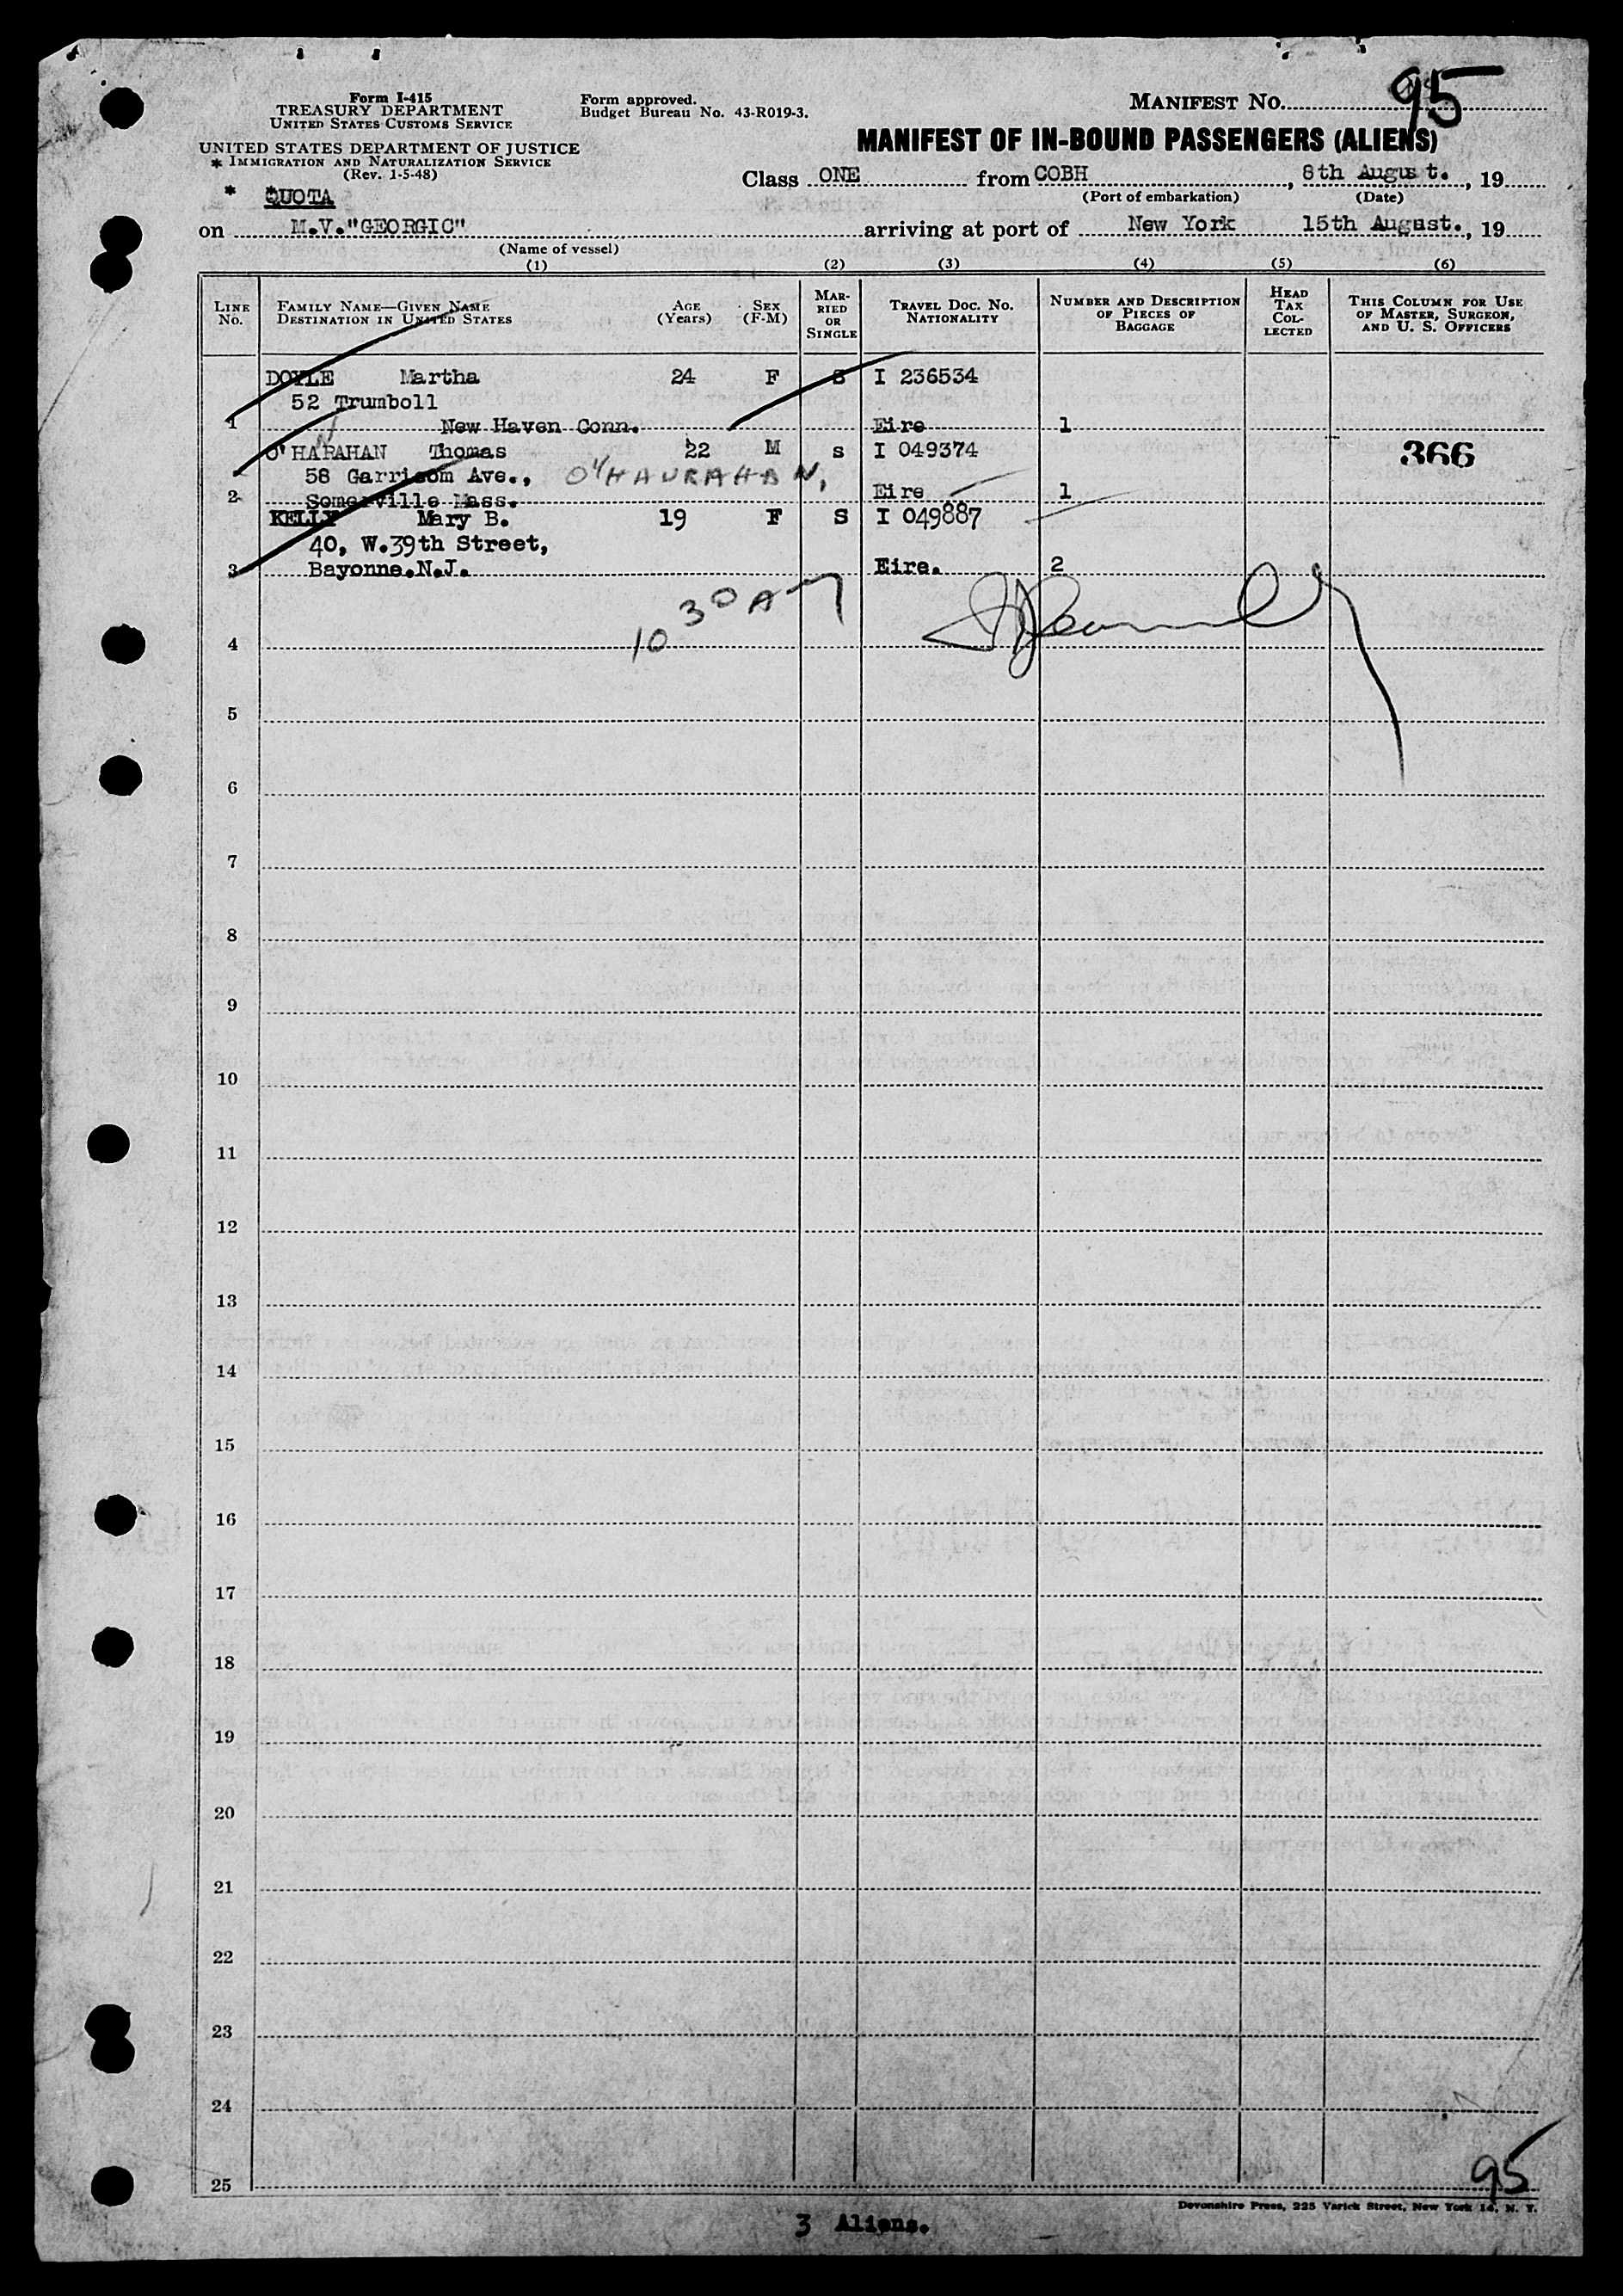 95
Form I-415
TREASURY DEPARTMENT
UNITED STATES CUSTOMS SERVICE
UNITED STATES DEPARTMENT OF JUSTICE
* IMMIGRATION AND NATURALIZATION SERVICE
(Rev. 1-5-48)
Form approved.
Budget Bureau No. 43-R019-3.
MANIFEST NO.
MANIFEST OF IN-BOUND PASSENGERS (ALIENS)
Class ONE from COBH, 8th August., 19
(Port of embarkation) (Date)
* QUOTA
on M.V."GEORGIC" arriving at port of New York 15th August., 19
(Name of vessel)
(1) (2) (3) (4) (5) (6)
LINE NO.
FAMILY NAME—GIVEN NAME
DESTINATION IN UNITED STATES
AGE (Years)
SEX (F-M)
MARRIED OR SINGLE
TRAVEL DOC. NO.
NATIONALITY
NUMBER AND DESCRIPTION OF PIECES OF BAGGAGE
HEAD TAX COLLECTED
THIS COLUMN FOR USE OF MASTER, SURGEON, AND U. S. OFFICERS
DOYLE Martha 24 F S I 236534
52 Trumboll
1 New Haven Conn. Eire 1
O'HARAHAN Thomas 22 M s I 049374 366
58 Garrisom Ave., O'HAURAHAN,
2 Somerville Mass. Eire 1
KELLY Mary B. 19 F S I 049887
40, W.39th Street,
3 Bayonne.N.J. Eire. 2
10 30 AM
4
5
6
7
8
9
10
11
12
13
14
15
16
17
18
19
20
21
22
23
24
25
95
Devonshire Press, 225 Varick Street, New York 14, N. Y.
3 Aliens.